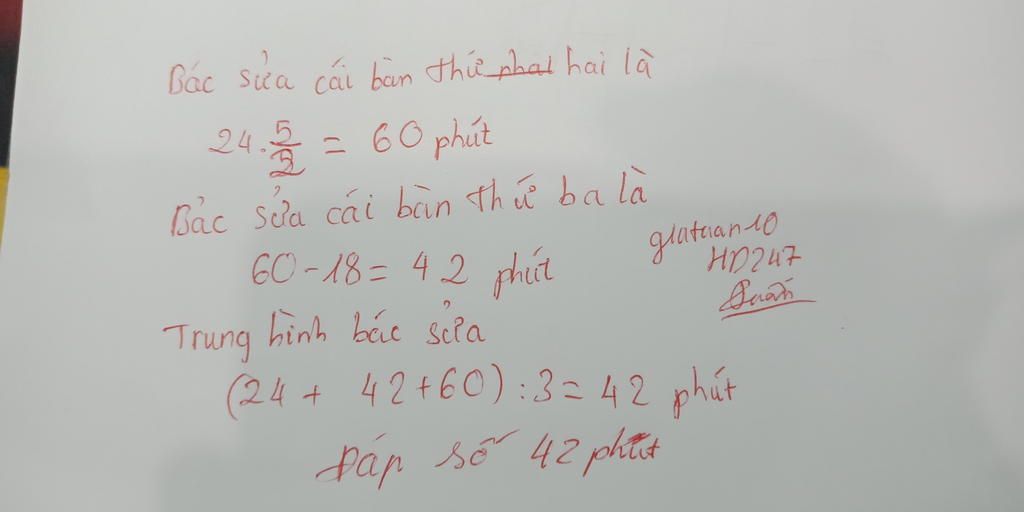 Bác sửa cái bàn thứ phai hai là
24. 5/2 = 60 phút
Bảc sửa cái bàn thứ ba là
60 - 18 = 42 phút
giatuan10
HD247
Quân
Trung bình bác sửa
(24 + 42 + 60) : 3 = 42 phút
Đáp số 42 phút